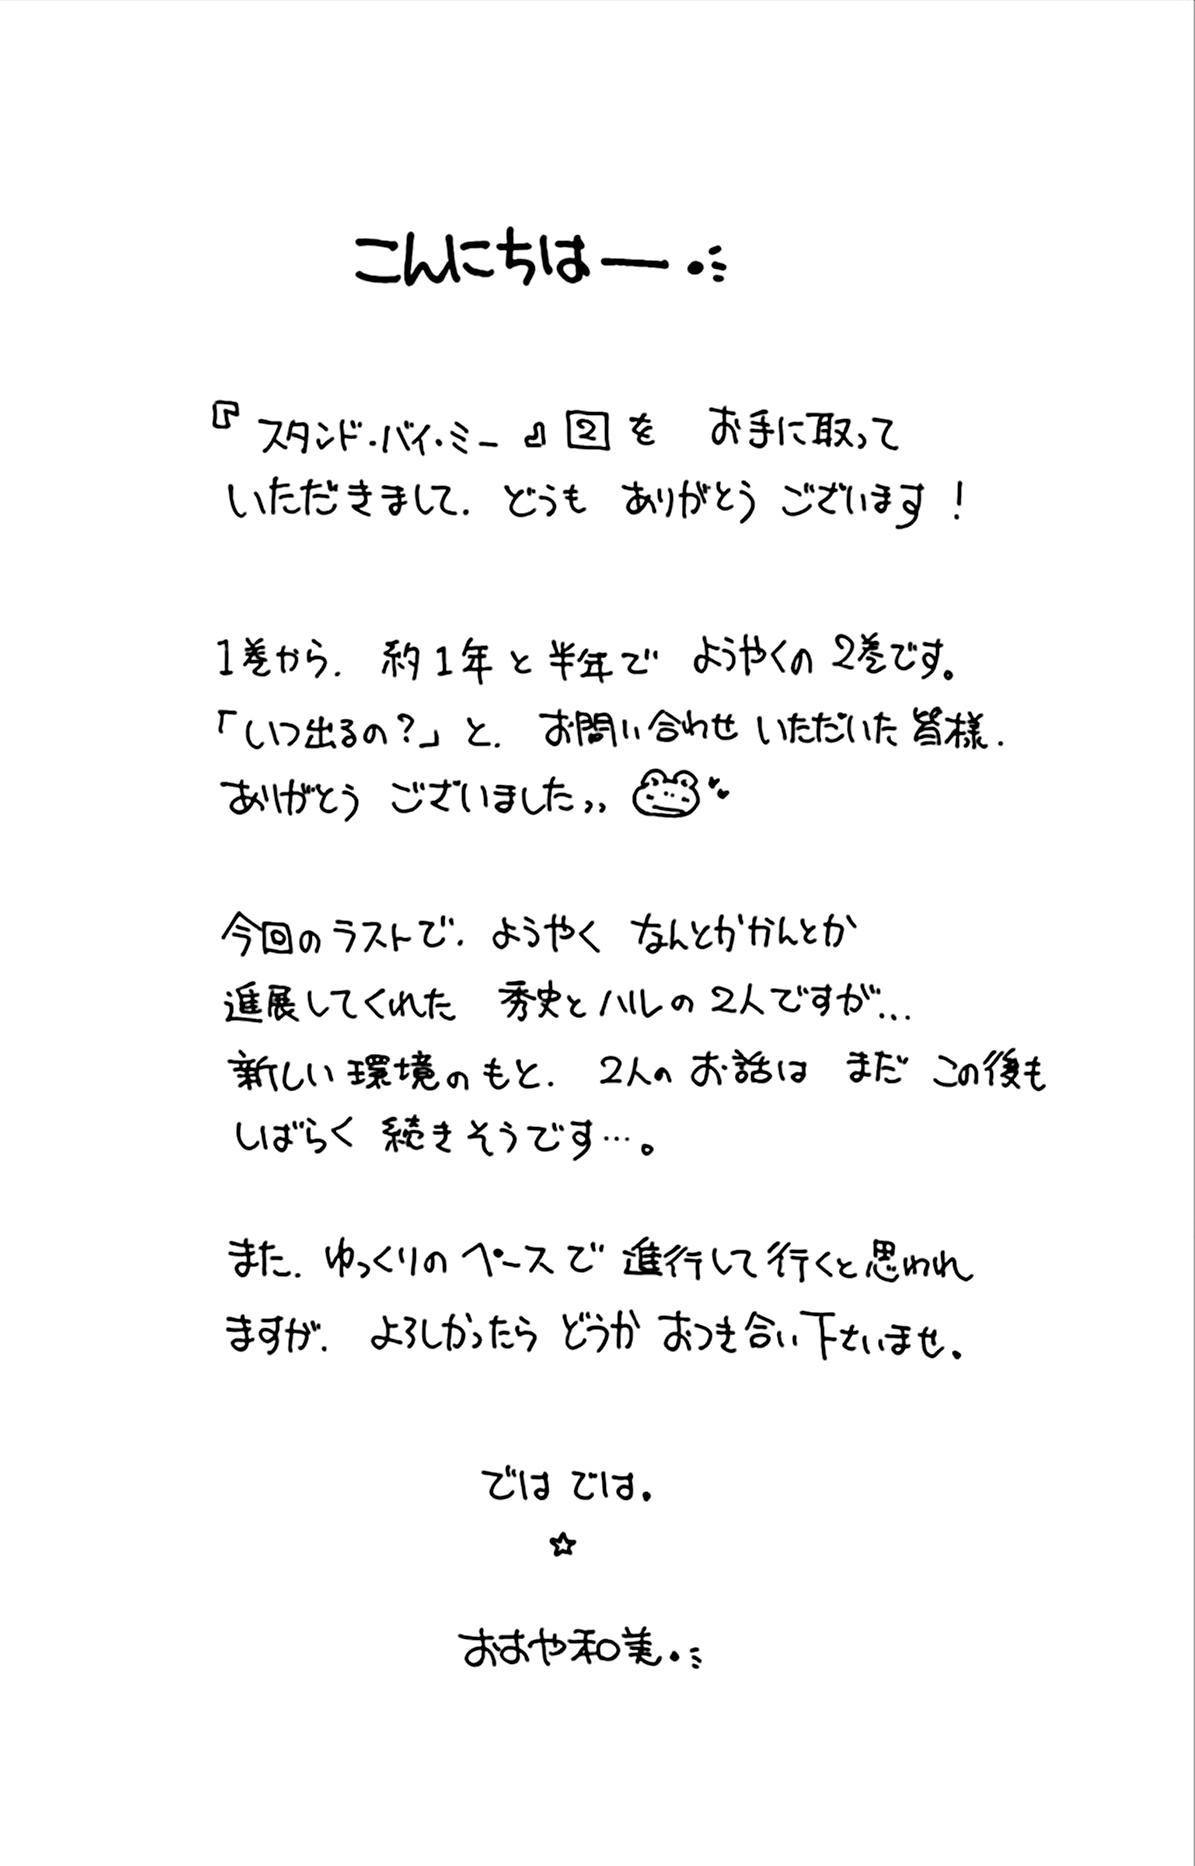 こんにちはー。
『スタンド・バイ・ミー』2を お手に取って
いただきまして. どうも ありがとう ございます!
1巻から. 約1年と半年で ようやくの 2巻です。
「いつ出るの?」と. お問い合わせ いただいた 皆様.
ありがとう ございました,,
今回のラストで. ようやく なんとかかんとか
進展してくれた 秀史とハルの 2人ですが...
新しい 環境のもと. 2人の お話は まだ この後も
しばらく 続きそうです…。
また. ゆっくりの ペースで 進行して行くと思われ
ますが. よろしかったら どうか おつき合い 下さいませ.
では では.
☆
おおや和美.